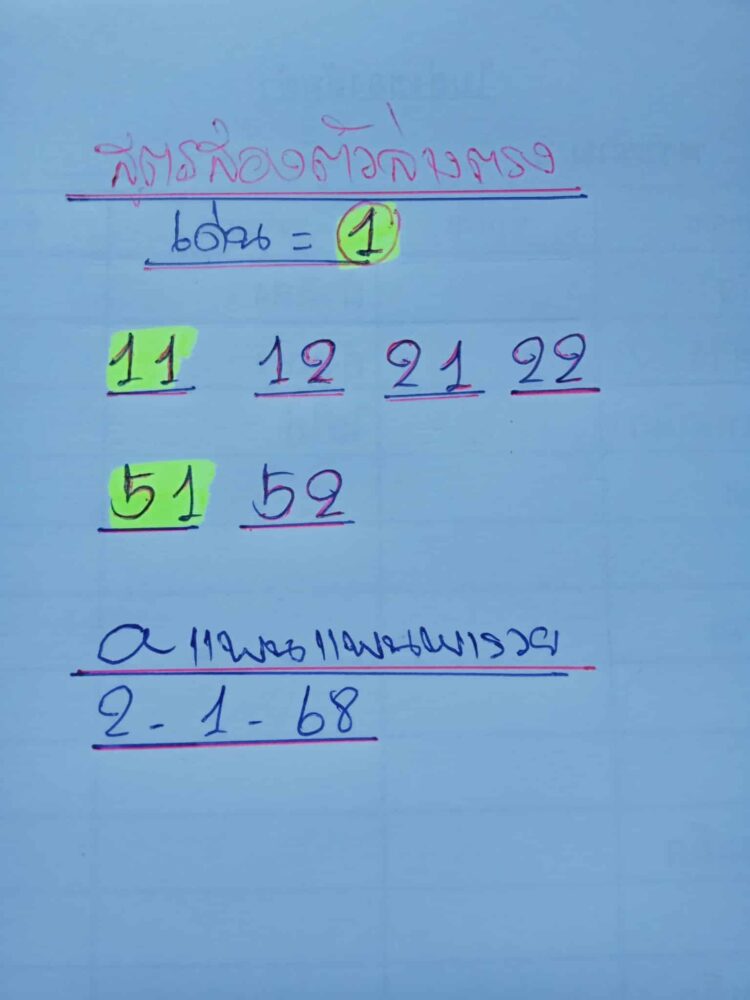 สูตรสองตัวล่างตรง
เด่น = 1
11 12 21 22
51 52
อแพนแพนพารวย
2 - 1 - 68